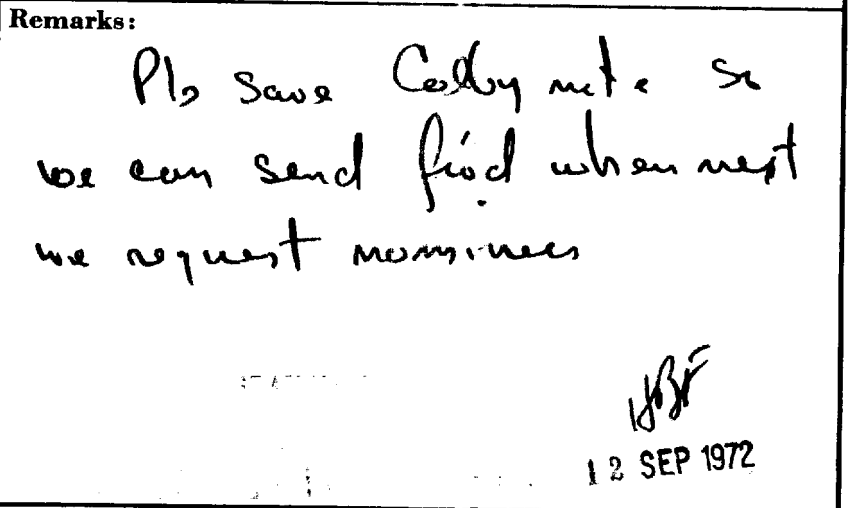 Remarks:
Pls save Colby note so
we can send fwd when next
we request nominees
HBF
12 SEP 1972